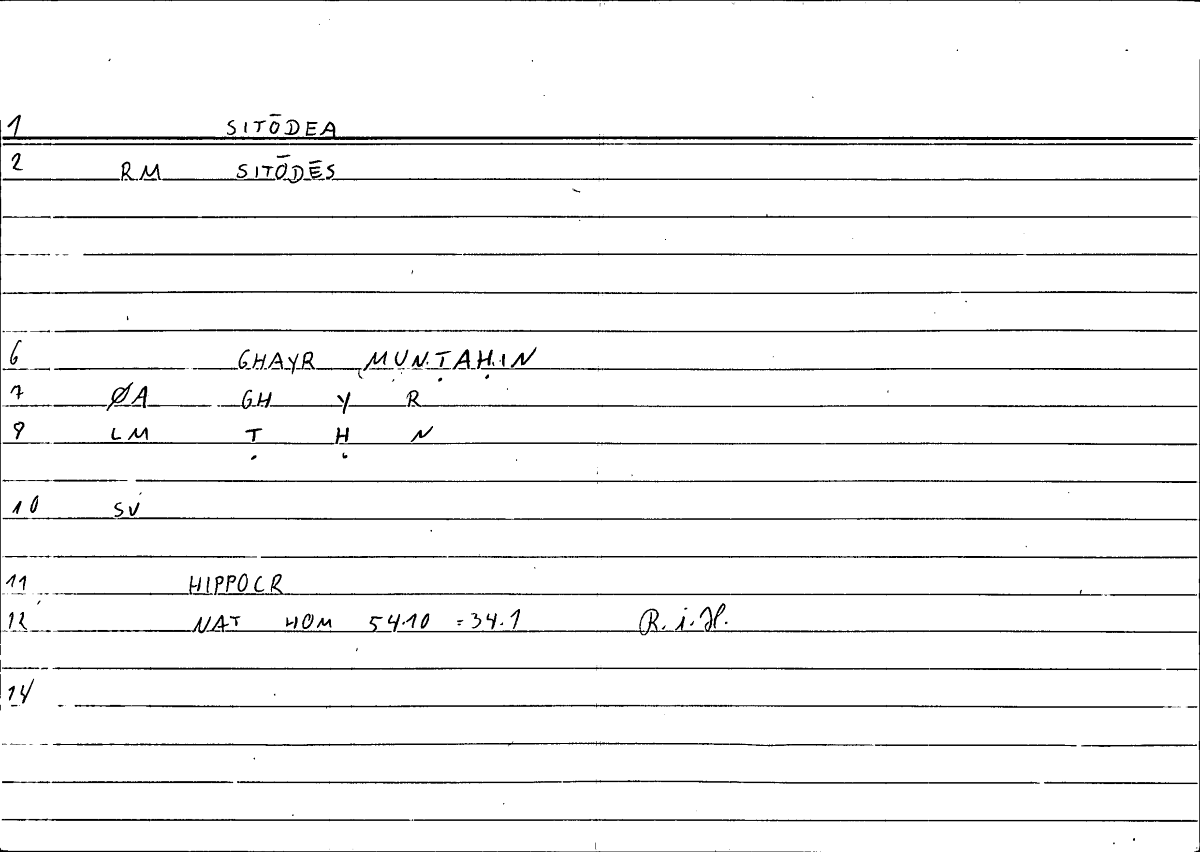 1 SITŌDEA
2 RM SITŌDĒS
6 GHAYR MUN.ṬAḤ.IN
7 ØA GH Y R
8 LM Ṭ Ḥ N
10 SV
11 HIPPOCR
12 NAT HOM 54.10 = 34.1 R.i.H.
14